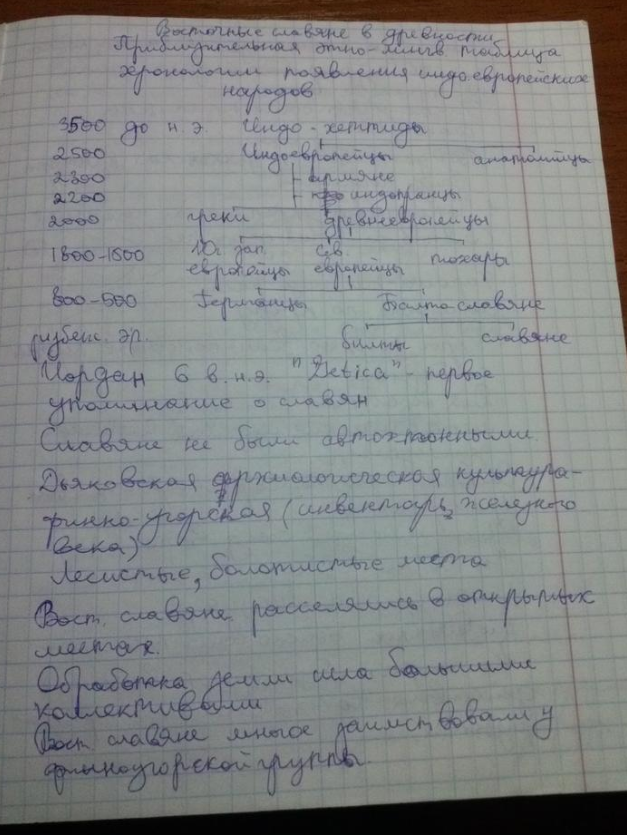 Восточные славяне в древности
Приблизительная этно-лингв таблица
хронологии появления индоевропейских
народов
3500 до н.э. Индо-хеттиды
2500 Индоевропейцы анатолийцы
2300 армяне
2200 индоиранцы
2000 греки древнеевропейцы
1800-1500 Юг. зап. Св.
европейцы европейцы тохары
800-500 Германцы Балто славяне
рубеж. эр. балты славяне
Иордан 6 в. н.э. "Getica" - первое
упоминание о славян
Славяне не были автохтонными
Дьяковская археологическая культура -
финно-угорская (инвентарь железного
века)
Лесистые, болотистые места
Вост. славяне расселялись в открытых
местах.
Обработка земли шла большими
коллективами
Вост славяне многое заимствовали у
финоугорской группы.